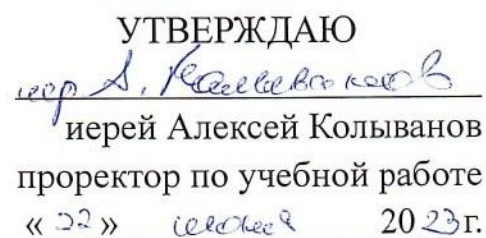 УТВЕРЖДАЮ
иер А.
иерей Алексей Колыванов
проректор по учебной работе
«22» июня 2023г.